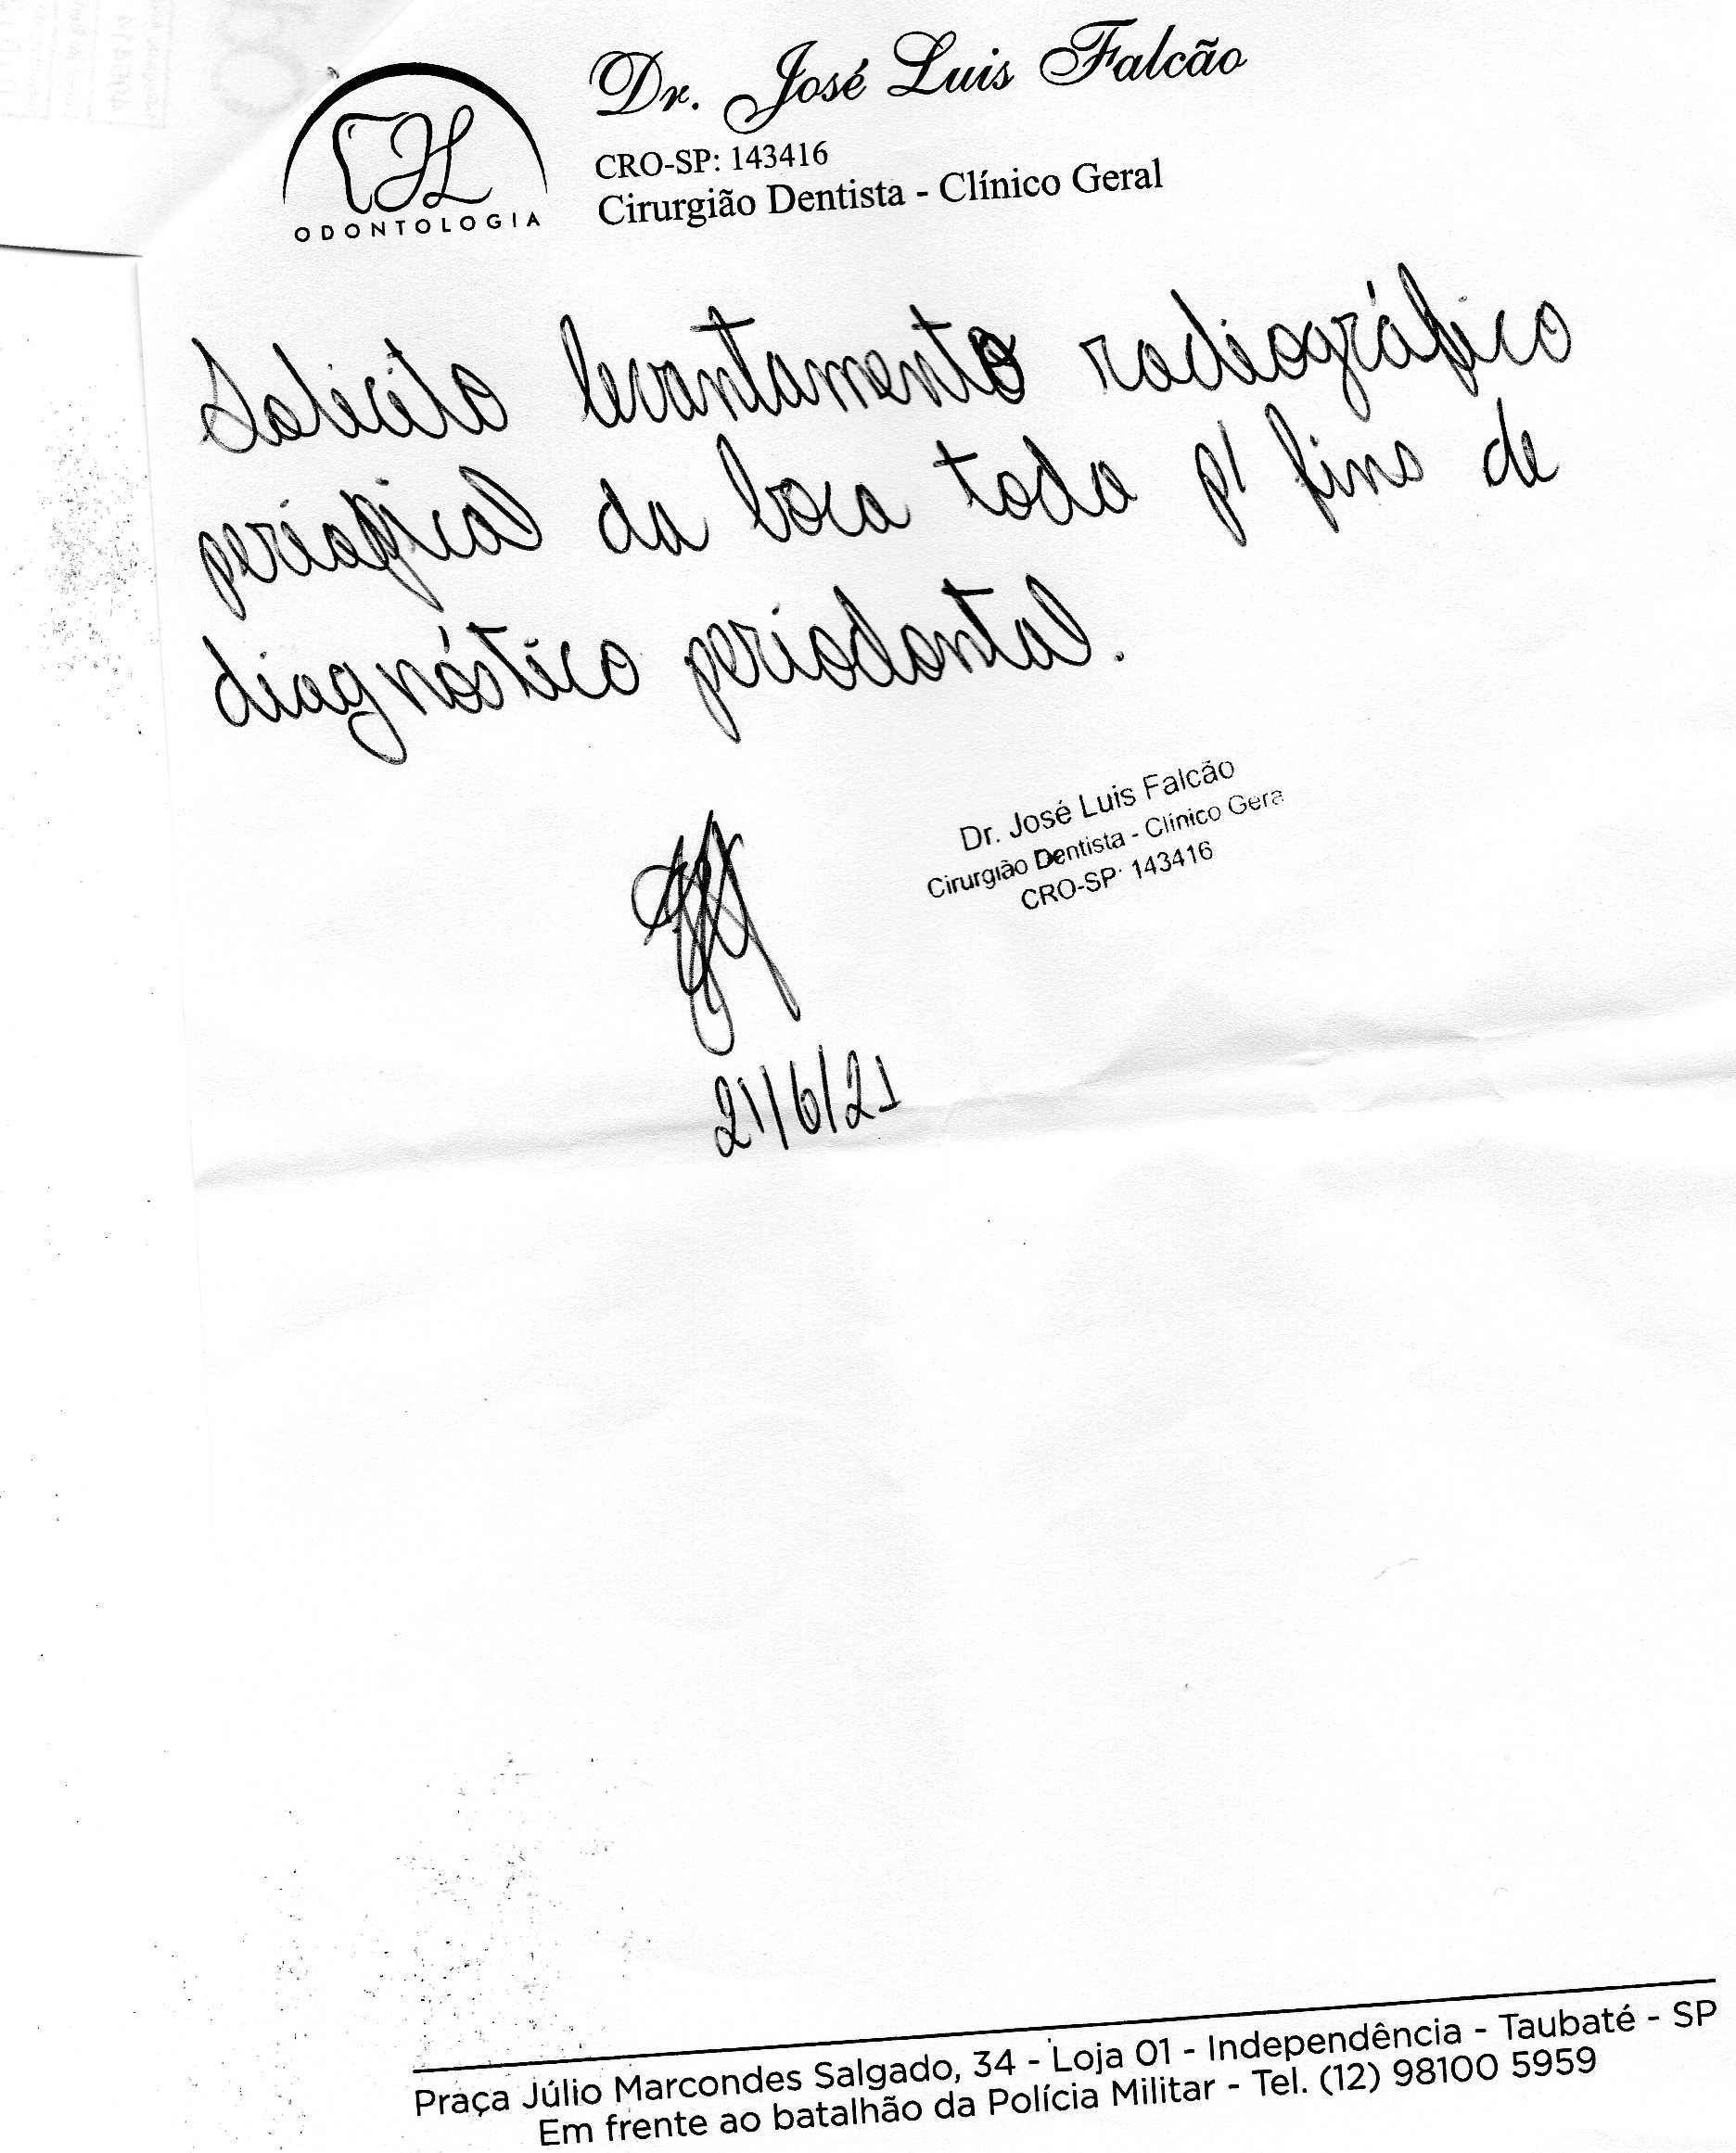 Dr. José Luis Falcão
CRO-SP: 143416
Cirurgião Dentista - Clínico Geral
JL
ODONTOLOGIA
Solicito levantamento radiográfico
periapical da boca toda p/ fins de
diagnóstico periodontal.
Dr. José Luis Falcão
Cirurgião Dentista - Clínico Gera
CRO-SP: 143416
21/6/21
Praça Júlio Marcondes Salgado, 34 - Loja 01 - Independência - Taubaté - SP
Em frente ao batalhão da Polícia Militar - Tel. (12) 98100 5959